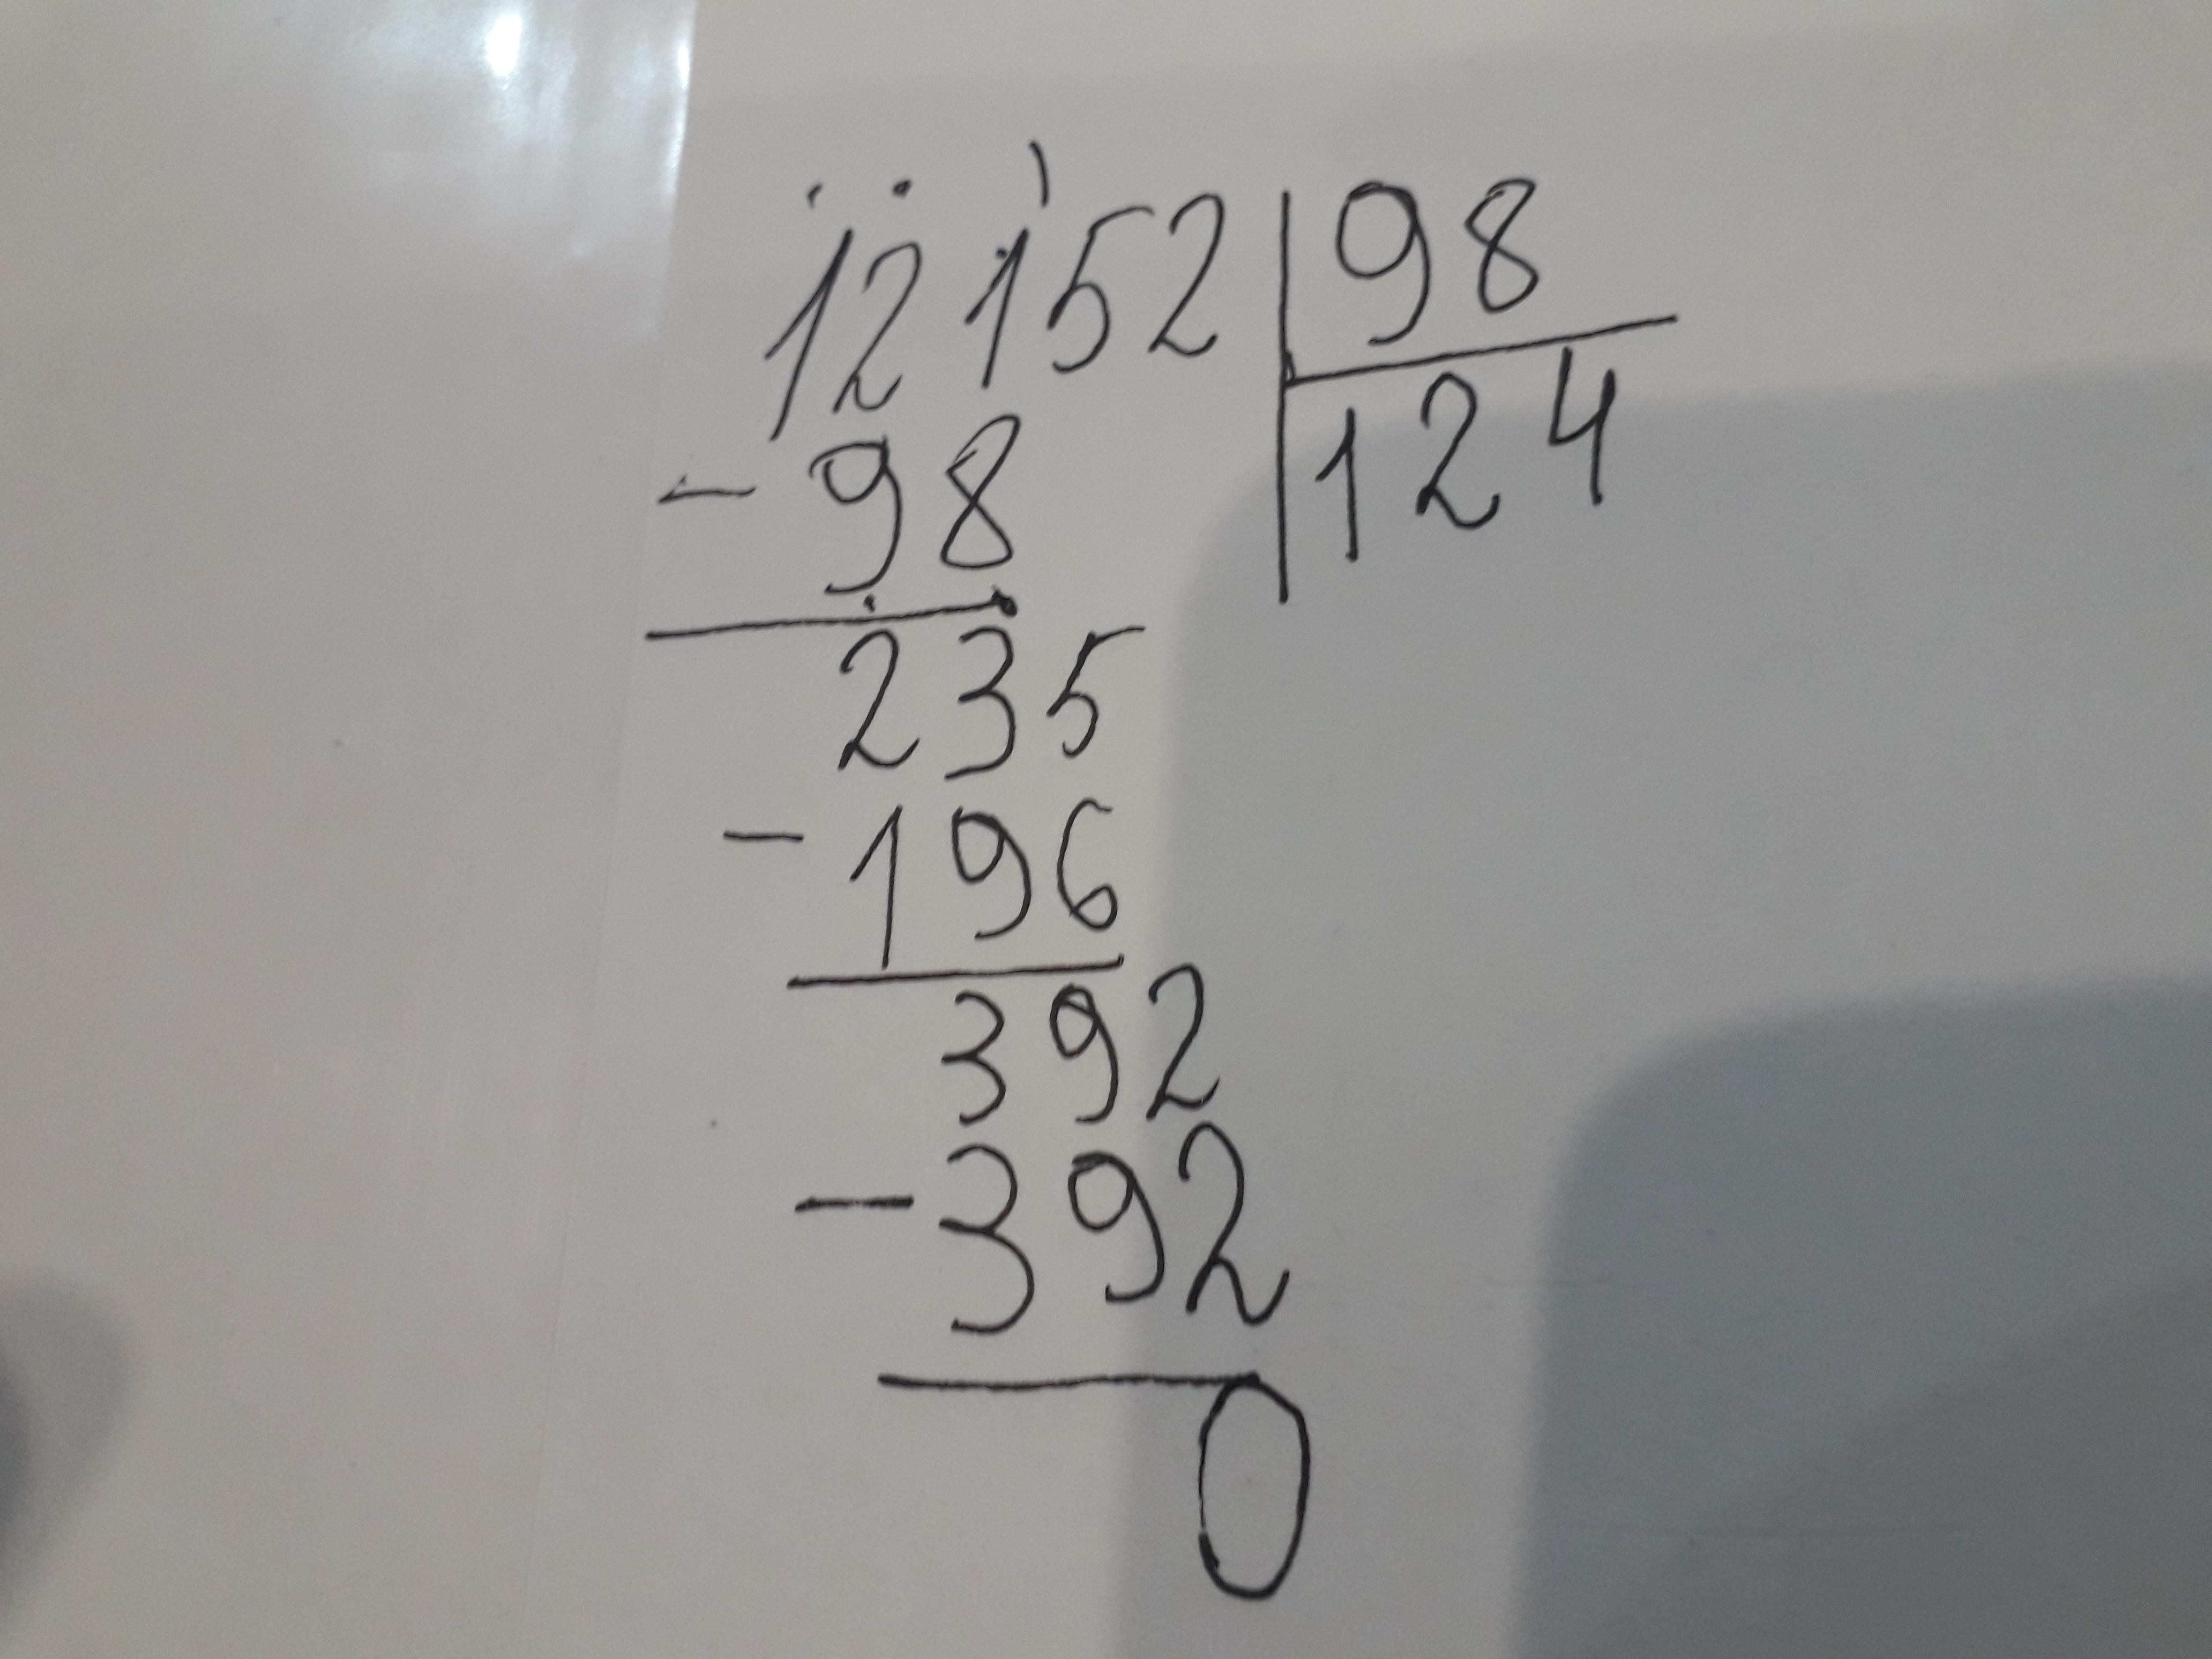 12152 98
124
- 98
235
- 196
392
- 392
0